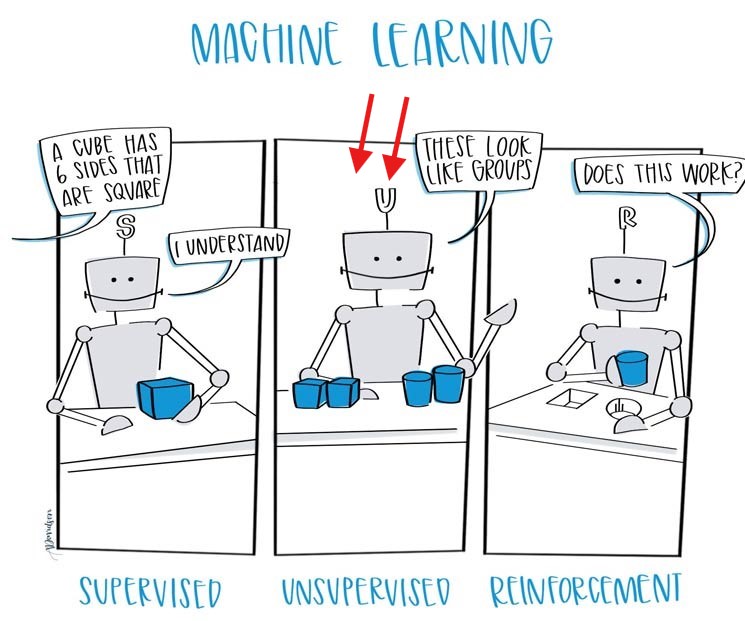 MACHINE LEARNING
A CUBE HAS
6 SIDES THAT
ARE SQUARE
S
I UNDERSTAND
U
THESE LOOK
LIKE GROUPS
DOES THIS WORK?
R
SUPERVISED
UNSUPERVISED
REINFORCEMENT